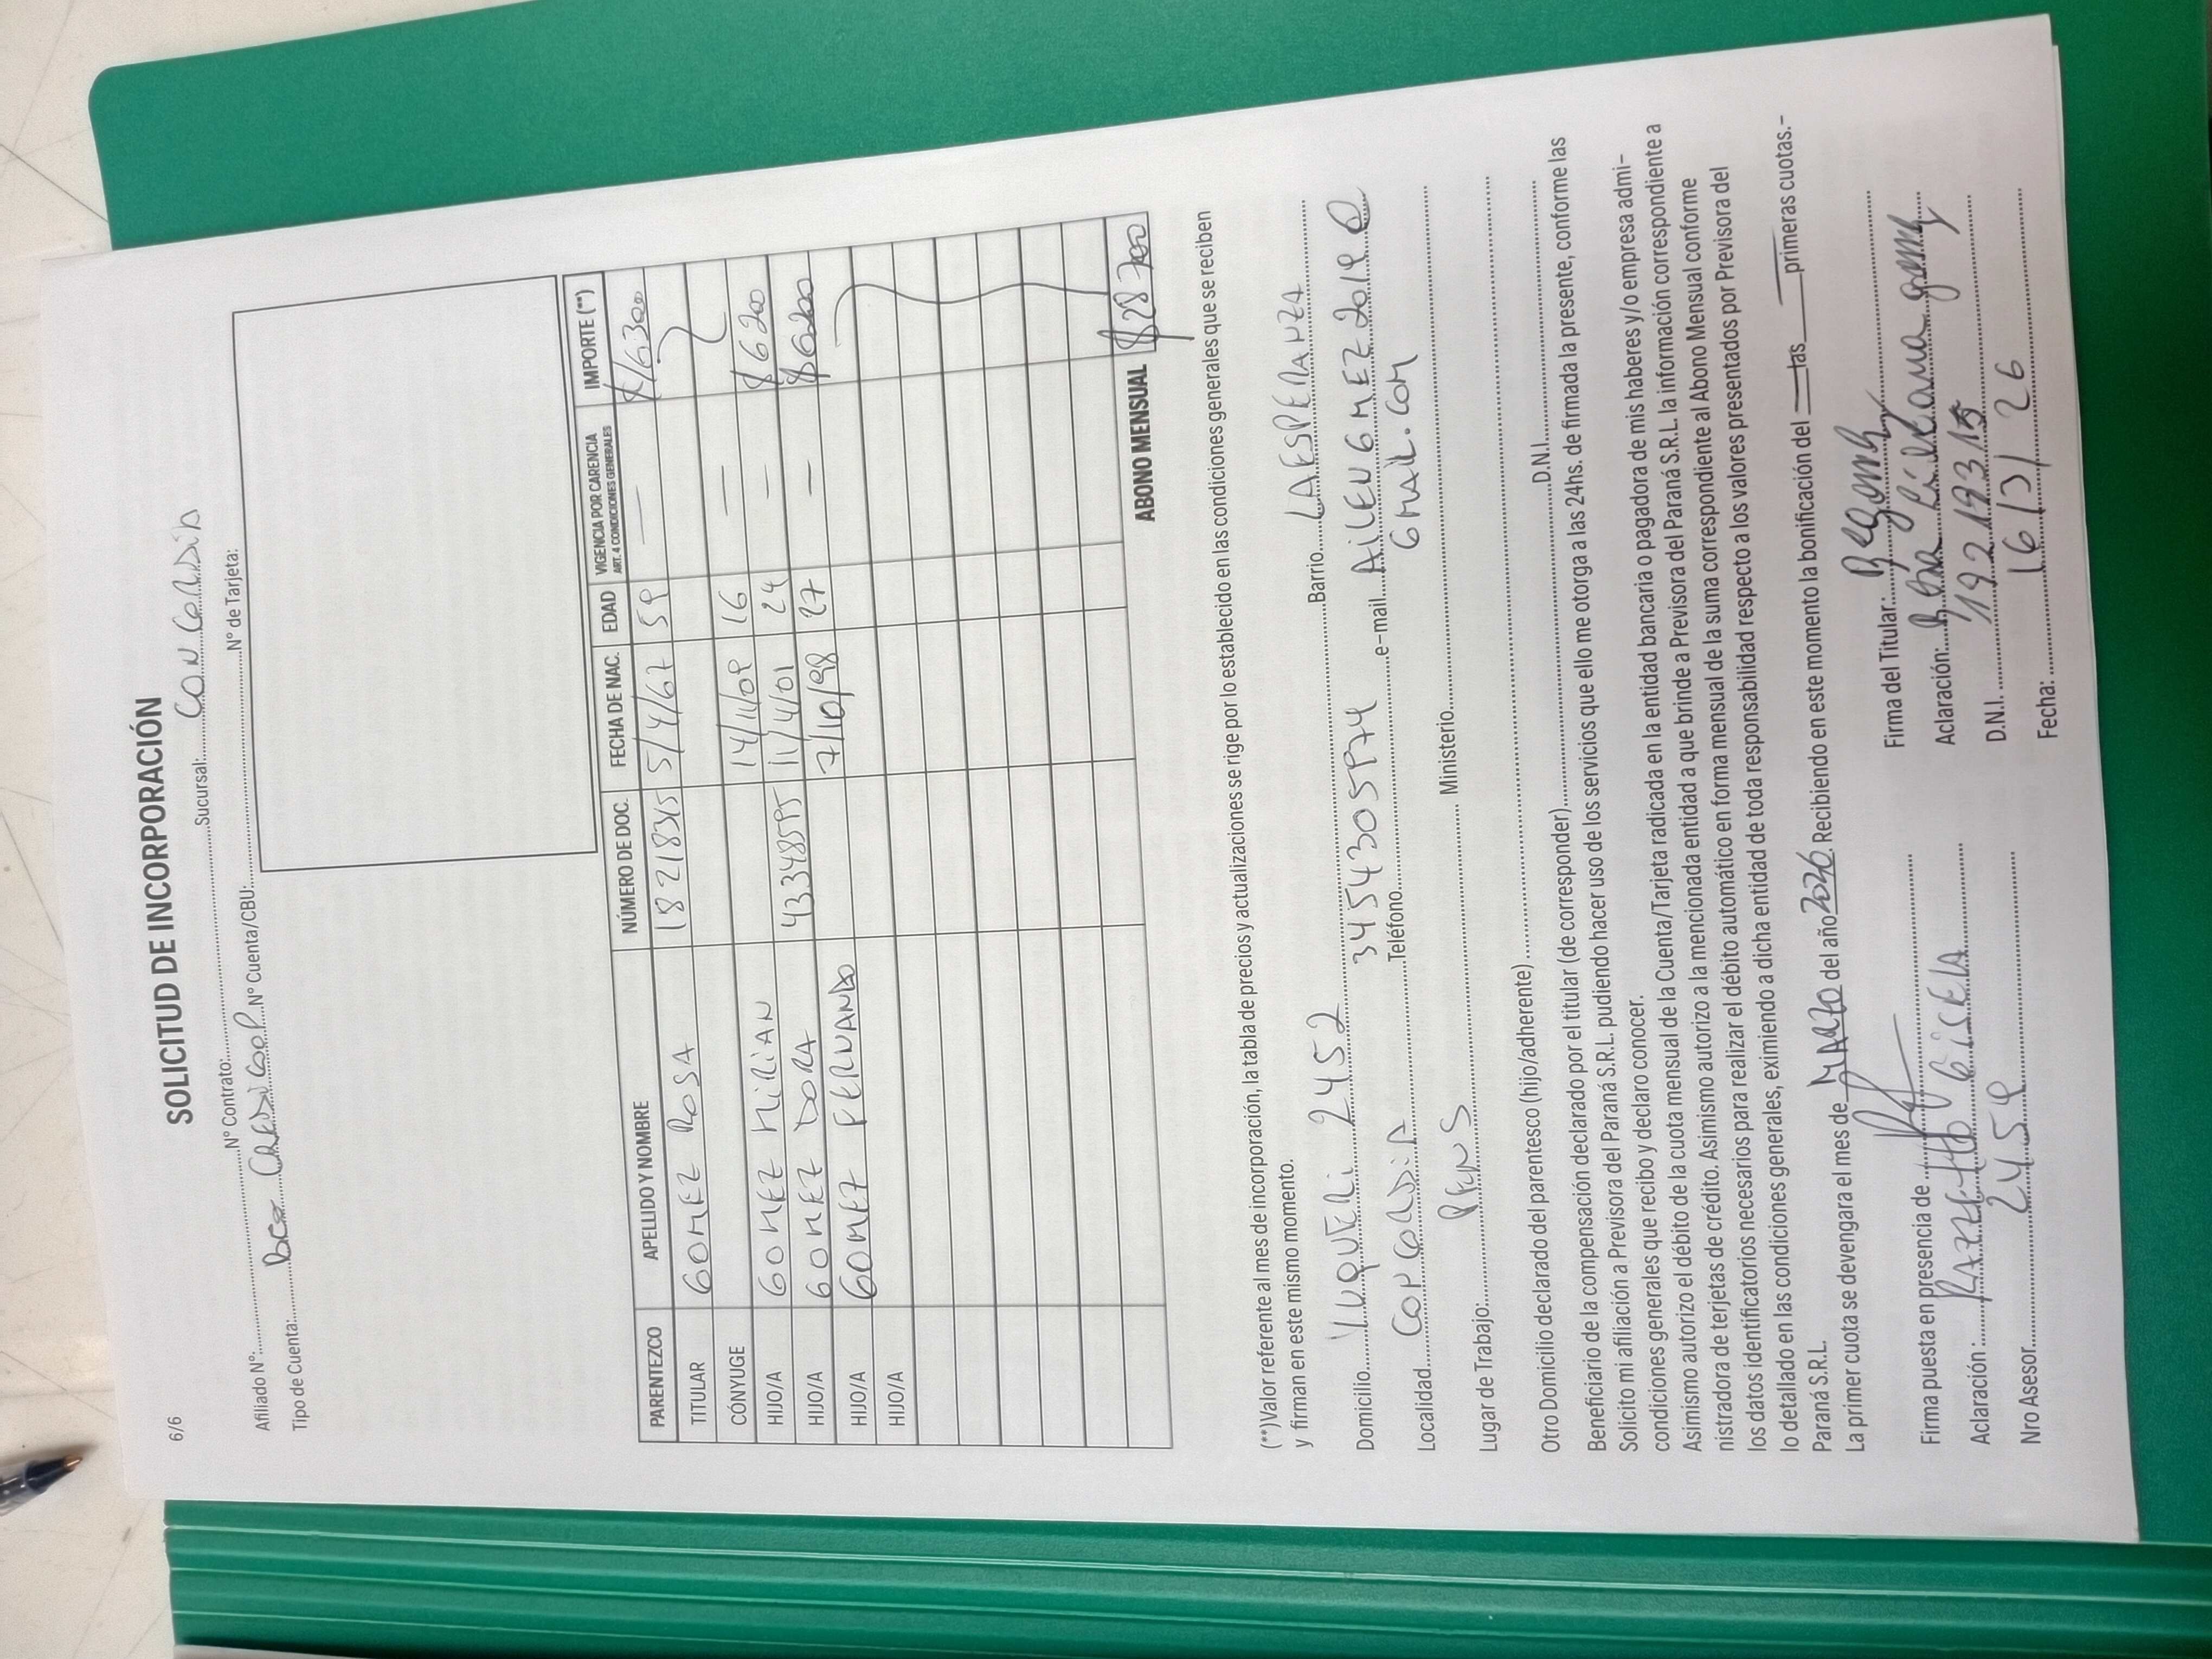 6/6
SOLICITUD DE INCORPORACIÓN
Afiliado Nº: Nº Contrato: Sucursal: CONCORDIA
Tipo de Cuenta: Bco CREDICOOP Nº Cuenta/CBU: Nº de Tarjeta:
PARENTEZCO APELLIDO Y NOMBRE NÚMERO DE DOC. FECHA DE NAC. EDAD VIGENCIA POR CARENCIA ART. 4 CONDICIONES GENERALES IMPORTE (**)
TITULAR GOMEZ ROSA 18218315 5/4/67 59 — $16300
CÓNYUGE
HIJO/A GOMEZ MIRIAN 14/11/09 16 — $6200
HIJO/A GOMEZ DORA 43348595 11/4/01 24 — $6200
HIJO/A GOMEZ FERNANDO 7/10/98 27 —
HIJO/A
ABONO MENSUAL $28700
(**)Valor referente al mes de incorporación, la tabla de precios y actualizaciones se rige por lo establecido en las condiciones generales que se reciben
y firman en este mismo momento.
Domicilio YUQUERI 2452 Barrio LA ESPERANZA
Localidad CONCORDIA Teléfono 3454305974 e-mail AILENGMEZ2019@
GMAIL.COM
Lugar de Trabajo: PENS Ministerio
Otro Domicilio declarado del parentesco (hijo/adherente)
Beneficiario de la compensación declarado por el titular (de corresponder) D.N.I.
Solicito mi afiliación a Previsora del Paraná S.R.L. pudiendo hacer uso de los servicios que ello me otorga a las 24hs. de firmada la presente, conforme las
condiciones generales que recibo y declaro conocer.
Asimismo autorizo el débito de la cuota mensual de la Cuenta/Tarjeta radicada en la entidad bancaria o pagadora de mis haberes y/o empresa admi-
nistradora de terjetas de crédito. Asimismo autorizo a la mencionada entidad a que brinde a Previsora del Paraná S.R.L. la información correspondiente a
los datos identificatorios necesarios para realizar el débito automático en forma mensual de la suma correspondiente al Abono Mensual conforme
lo detallado en las condiciones generales, eximiendo a dicha entidad de toda responsabilidad respecto a los valores presentados por Previsora del
Paraná S.R.L.
La primer cuota se devengara el mes de MARZO del año 2026. Recibiendo en este momento la bonificación del — las — primeras cuotas.-
Firma puesta en presencia de Firma del Titular: RGomez
Aclaración: GISELA Aclaración: Rosa Liliana Gomez
Nro Asesor 2459 D.N.I.
Fecha: 16/3/26